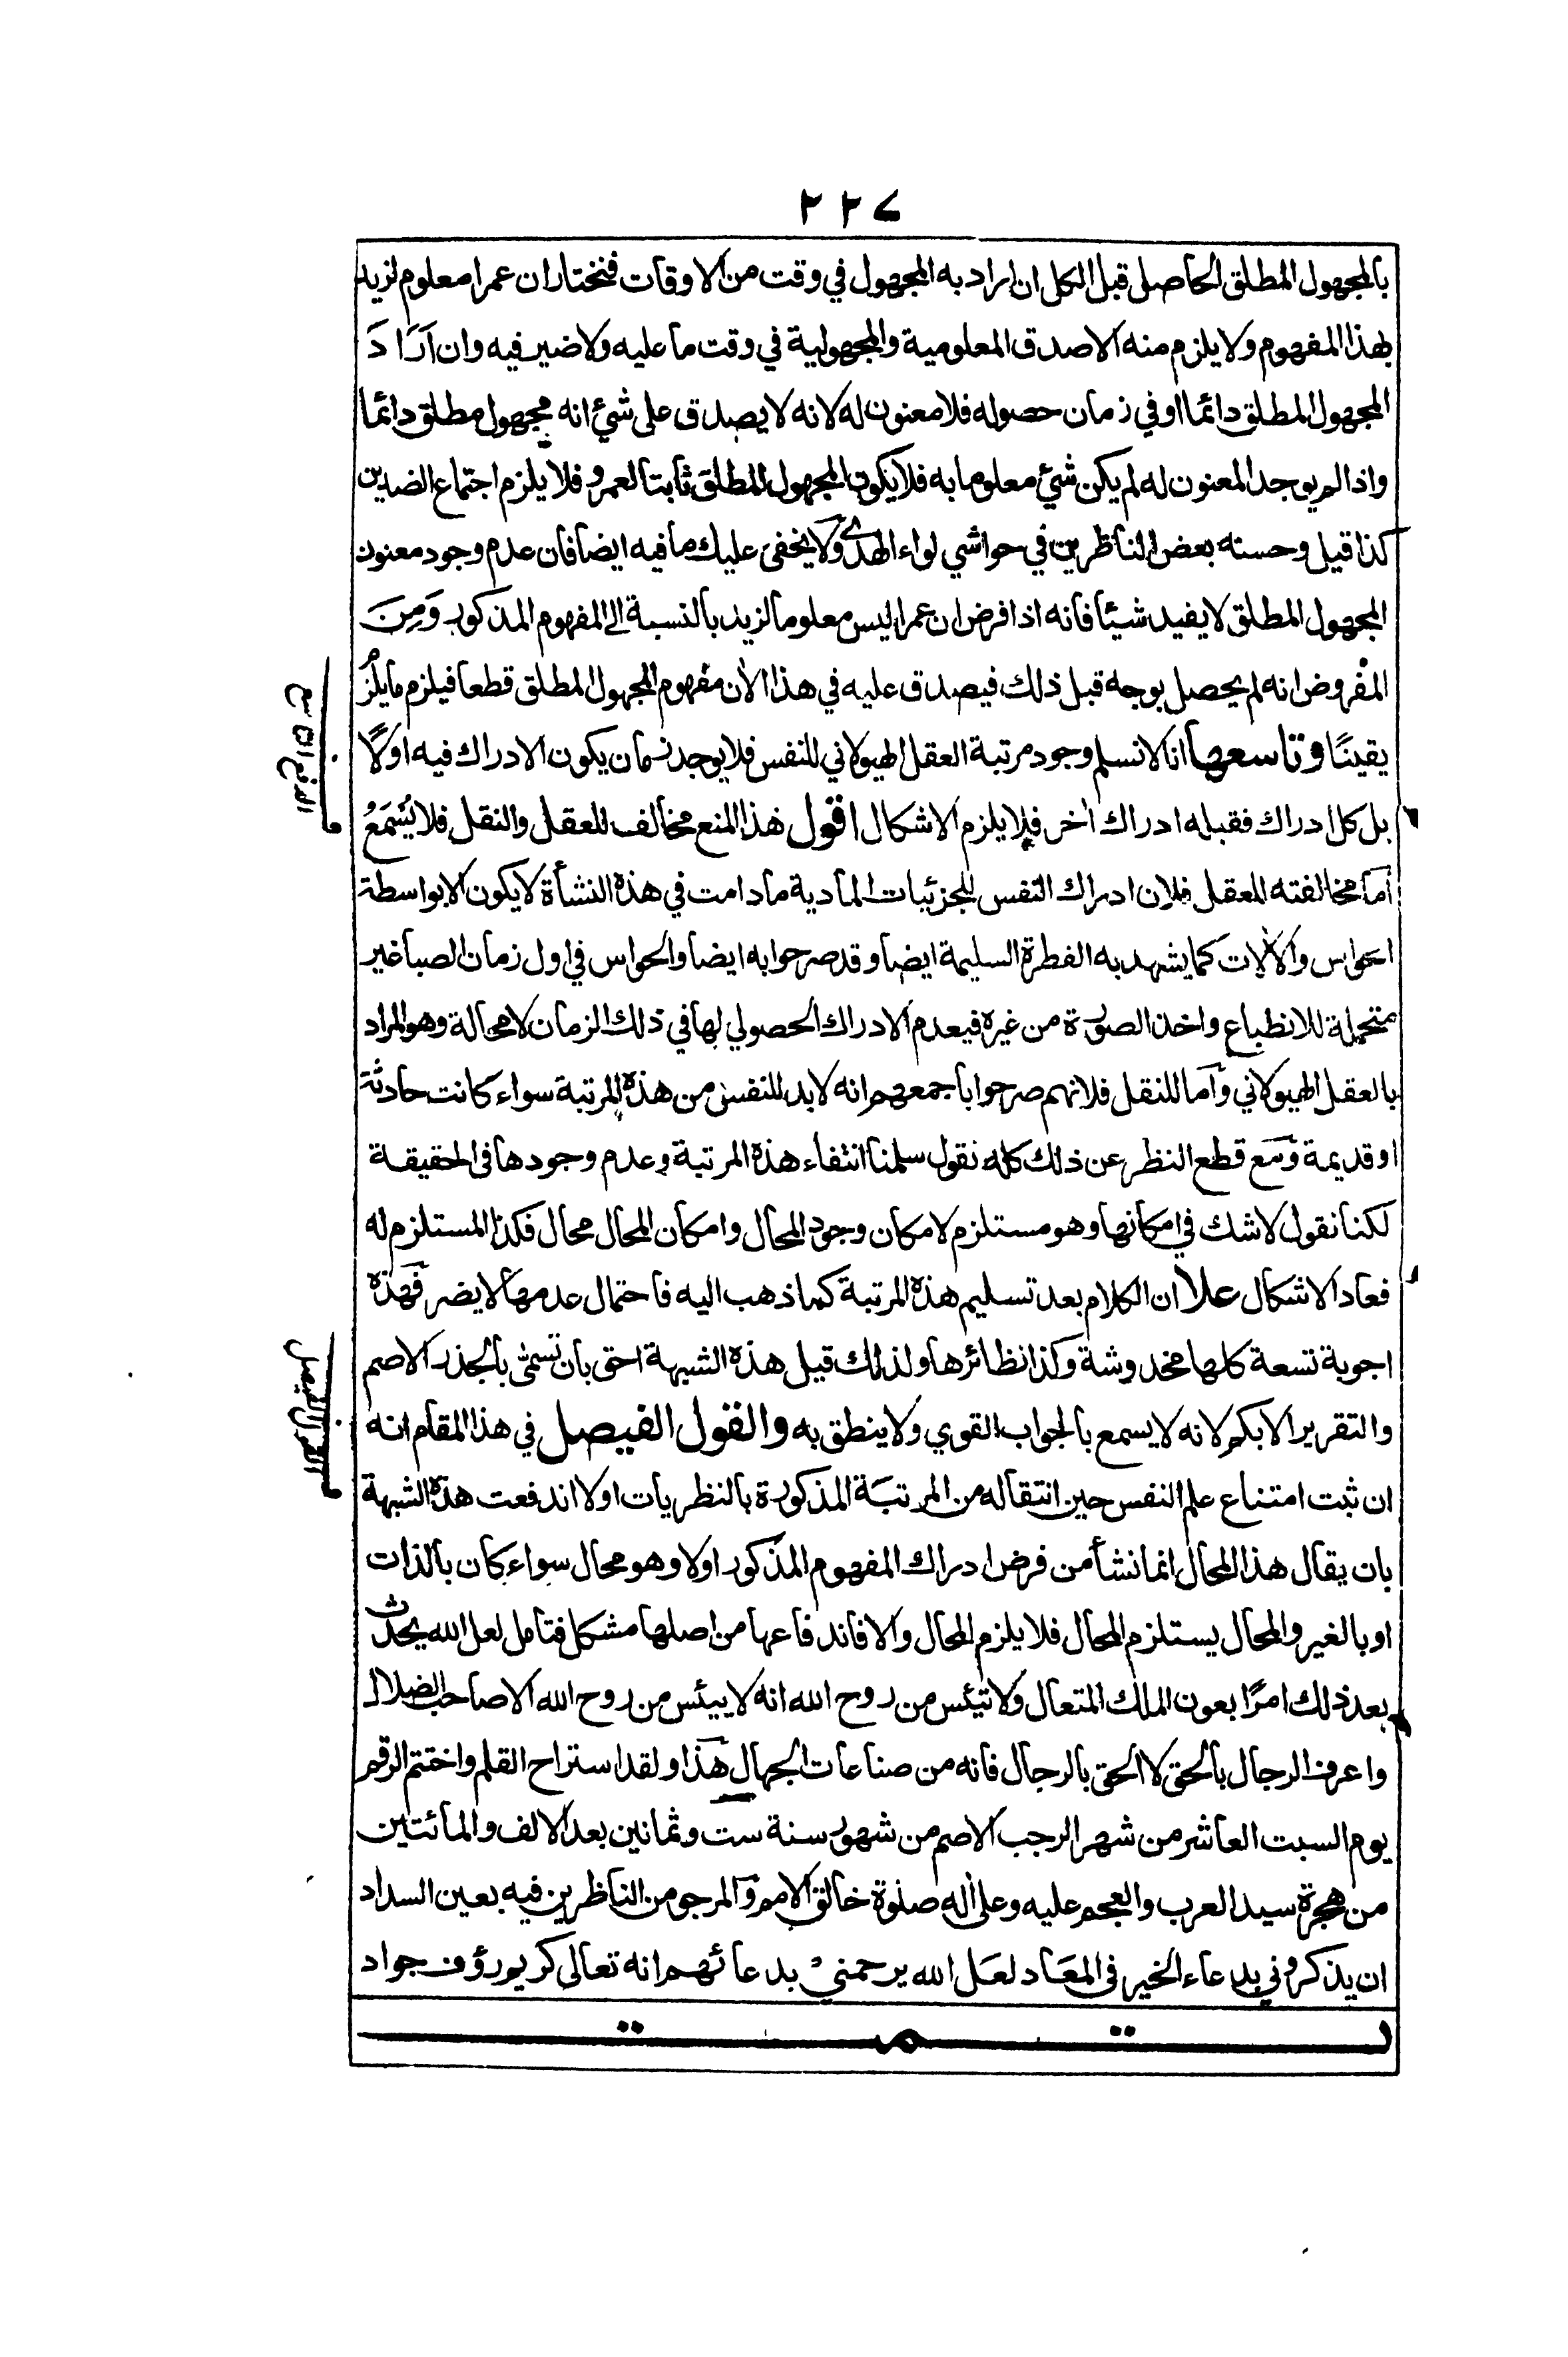 ٢٢٧
بالمجهول المطلق الحاصل قبل الكل ان اراد به المجهول في وقت من الاوقات فنختار ان عمرا معلوم لزيد
بهذا المفهوم ولا يلزم منه الا صدق المعلومية والمجهولية في وقت ما عليه ولا ضير فيه وان آرَادَ
المجهول المطلق دائما او في زمان حصوله فلا معنون له لانه لا يصدق على شيئ انه مجهول مطلق دائما
واذا لم يوجد المعنون له لم يكن شيئ معلوما به فلا يكون المجهول المطلق ثابتا لعمرو فلا يلزم اجتماع الضدين
كذا قيل وحسنه بعض الناظرين في حواشي لواء الهدى ولا يخفى عليك ما فيه ايضا فان عدم وجود معنون
المجهول المطلق لا يفيد شيئا فانه اذا فرض ان عمرا ليس معلوما لزيد بالنسبة الى المفهوم المذكور وَمِنَ
المفروض انه لم يحصل بوجه قبل ذلك فيصدق عليه في هذا الأن مفهوم المجهول المطلق قطعا فيلزم ما يلزمُ
يقينًا وتاسعها انا لا نسلم وجود مرتبة العقل الهيولاني للنفس فلا يوجد زمان يكون الادراك فيه اولًا
بل كل ادراك فقبله ادراك أخر فلا يلزم الاشكال اقول هذا المنع مخالف للعقل والنقل فلا يُسْمَعُ
أمآ مخالفته للعقل فلان ادراك النفس للجزئيات المادية ما دامت في هذه النشأة لا يكون الا بواسطة
الحواس والألات كما يشهد به الفطرة السليمة ايضا وقد صرحوا به ايضا والحواس في اول زمان الصبا غير
متحملة للانطباع واخذ الصورة من غيره فيعدم الادراك الحصولي لها في ذلك الزمان لا محالة وهو المراد
بالعقل الهيولاني وآما للنقل فلانهم صرحوا باجمعهم انه لا بد للنفس من هذه المرتبة سواء كانت حادثة
او قديمة ومَع قطع النظر عن ذلك كله نقول سلمنا انتفاء هذه المرتبة وعدم وجودها في الحقيقة
لكنا نقول لا شك في امكانها وهو مستلزم لامكان وجود المحال وامكان المحال محال فكذا المستلزم له
فعاد الاشكال علا ان الكلام بعد تسليم هذه المرتبة كما ذهب اليه فاحتمال عدمها لا يضر فهذه
اجوبة تسعة كلها مخدوشة وكذا نظائرها ولذلك قيل هذه الشبهة احق بان تسمى بالجذر الاصم
والتقرير الابكم لانه لا يسمع بالجواب القوي ولا ينطق به والقول الفيصل في هذا المقام انه
ان ثبت امتناع علم النفس حين انتقاله من المرتبَة المذكورة بالنظريات اولا اندفعت هذه الشبهة
بان يقال هذا المحال انما نشأ من فرض ادراك المفهوم المذكور اولا وهو محال سواء كان بالذات
او بالغير والمحال يستلزم المحال فلا يلزم المحال والا فاندفاعها من اصلها مشكل فتامل لعل الله يحدث
بعد ذلك امرًا بعون الملك المتعال ولا تيئس من روح الله انه لا ييئس من روح الله الا صاحب الضلال
واعرف الرجال بالحق لا الحق بالرجال فانه من صناعات الجهال هذا ولقد استراح القلم واختتم الرقم
يوم السبت العاشر من شهر الرجب الاصم من شهور سنة ست وثمانين بعد الالف والمائتين
من هجرة سيد العرب والعجم عليه وعلى أله صلوة خالق الامم والمرجو من الناظرين فيه بعين السداد
ان يذكروني بدعاء الخير في المعَاد لعَل الله يرحمنيْ بدعائهم انه تعالى كريم رؤف جواد
تمت
الدفع التاسع
القول الفيصل